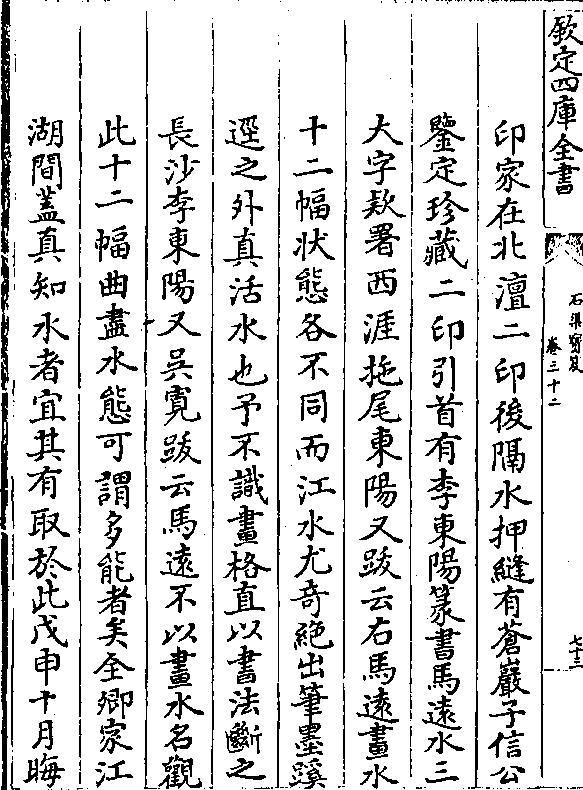 欽定四庫全書
石渠寳笈
卷三十二
七十三
印家在北澶二印後隔水押縫有蒼巖子信公
鑒定珍藏二印引首有李東陽篆書馬遠水三
大字欵署西涯拖尾東陽又跋云右馬遠畫水
十二幅狀態各不同而江水尤奇絶出筆墨蹊
逕之外真活水也予不識畫格直以書法斷之
長沙李東陽又吳寛跋云馬遠不以畫水名觀
此十二幅曲盡水態可謂多能者矣全卿家江
湖間葢真知水者宜其有取於此戊申十月晦